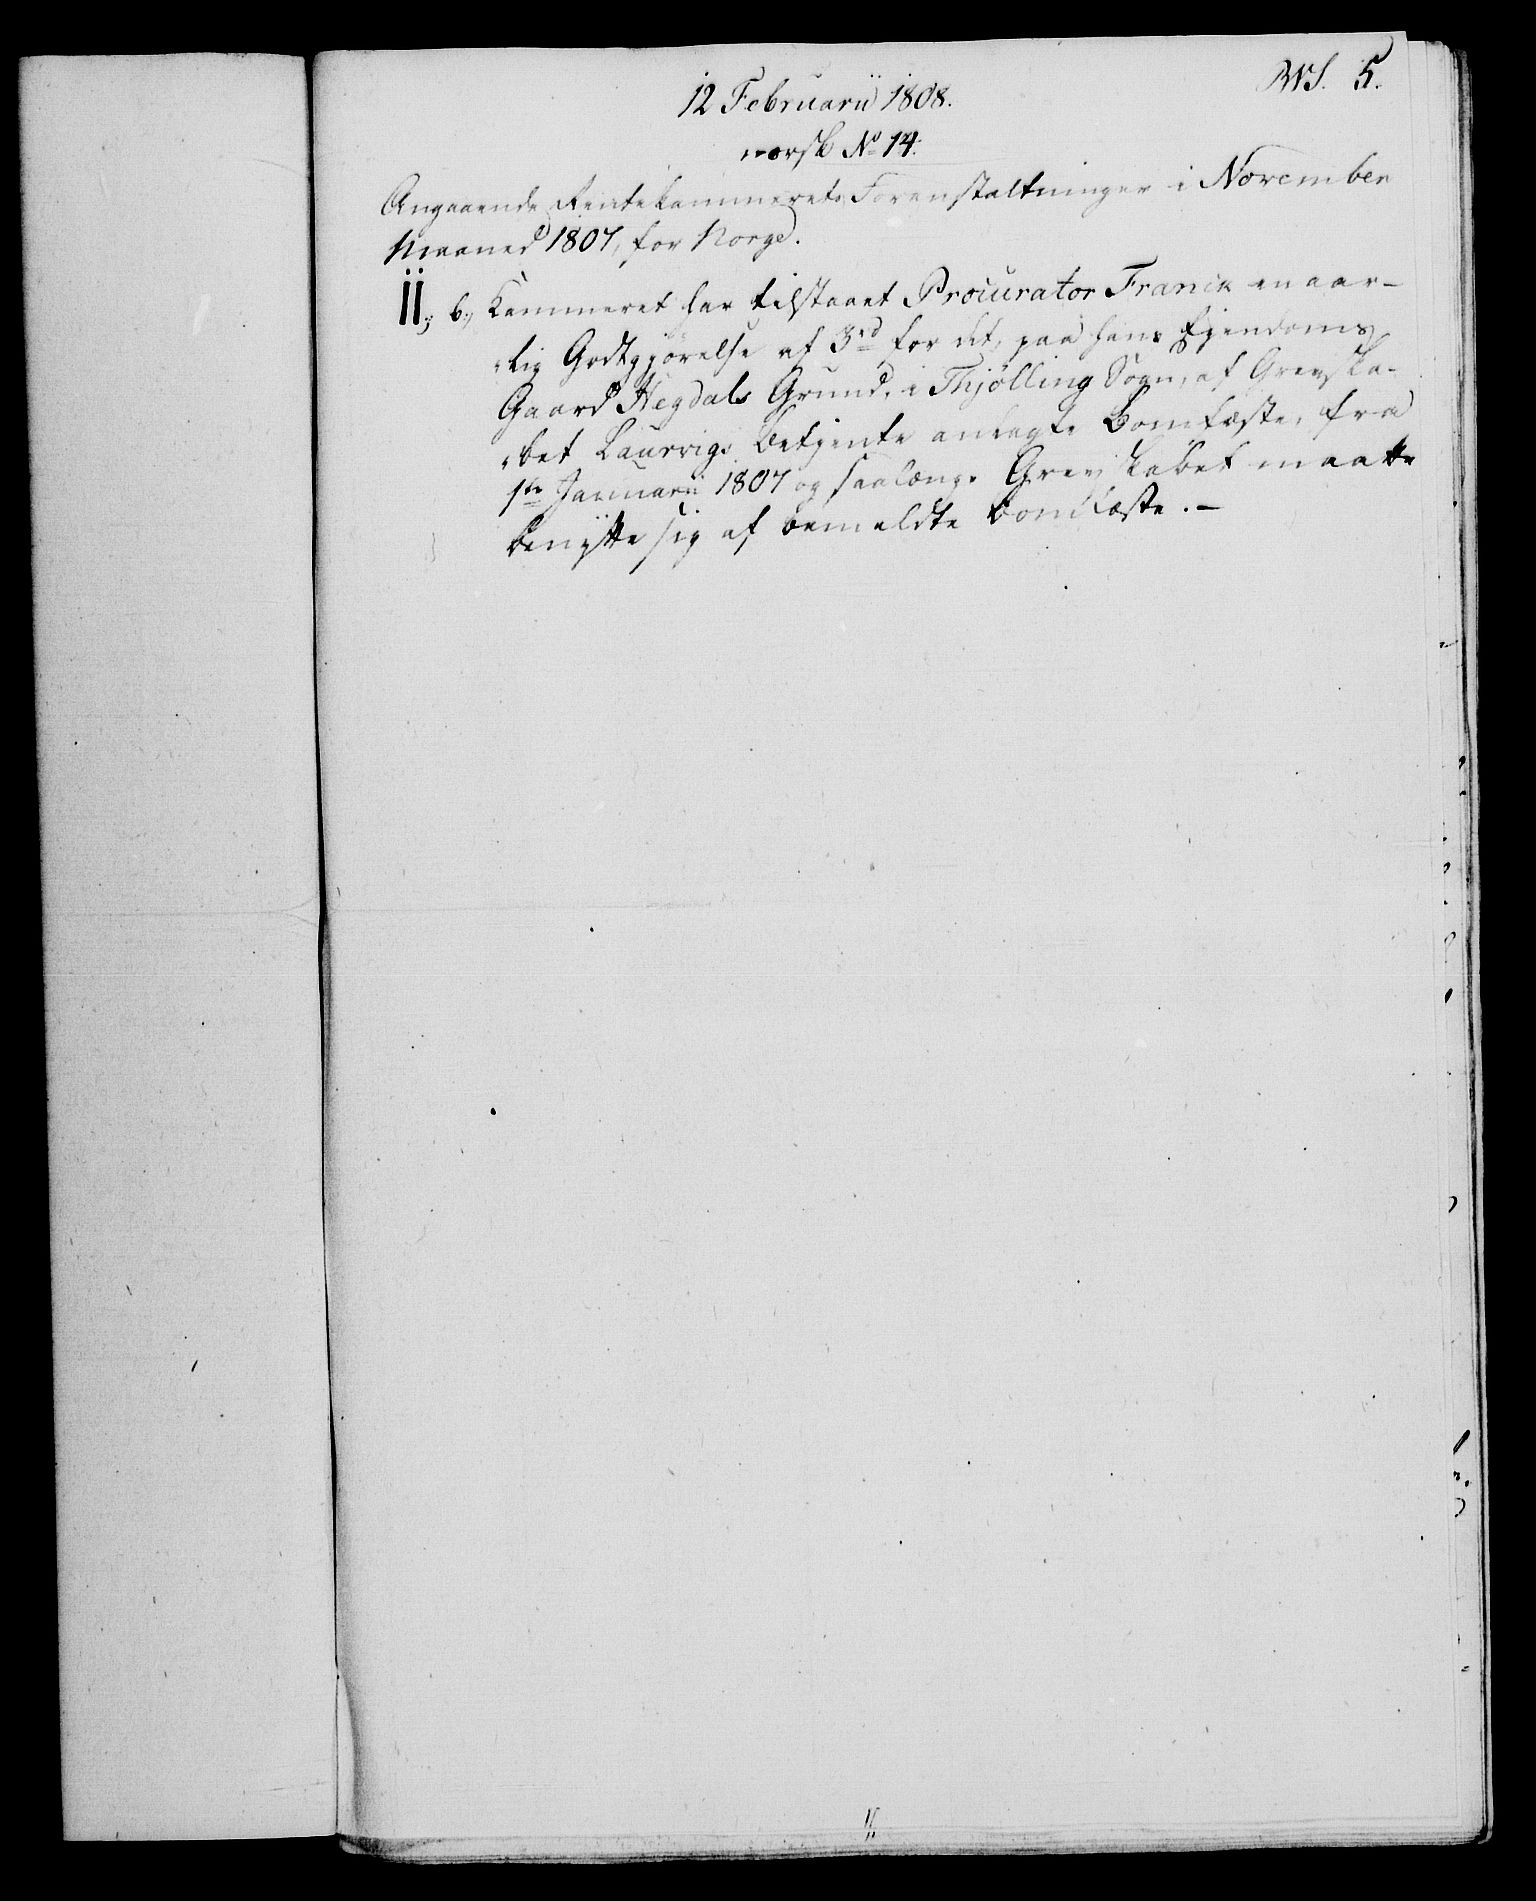 12 Februarii 1808.
5.
norsk No 14.
Angaaende Rentekammerets Foranstaltninger i November
Maaned 1807, for Norge.
II, b., Kammeret har tilstaaet Procurator Franck en aar-
„lig Godtgjörelse af 3rd for det, paa hans Ejendoms
Gaard Hegdals Grund, i Thjølling Sogn, af Grevska-
„bet Laurvigs Betjente anlagte Bomfæste, fra
1ste Januarii 1807 og saalænge Grevskabet maatte
benÿtte sig af bemeldte Bomfæste. —